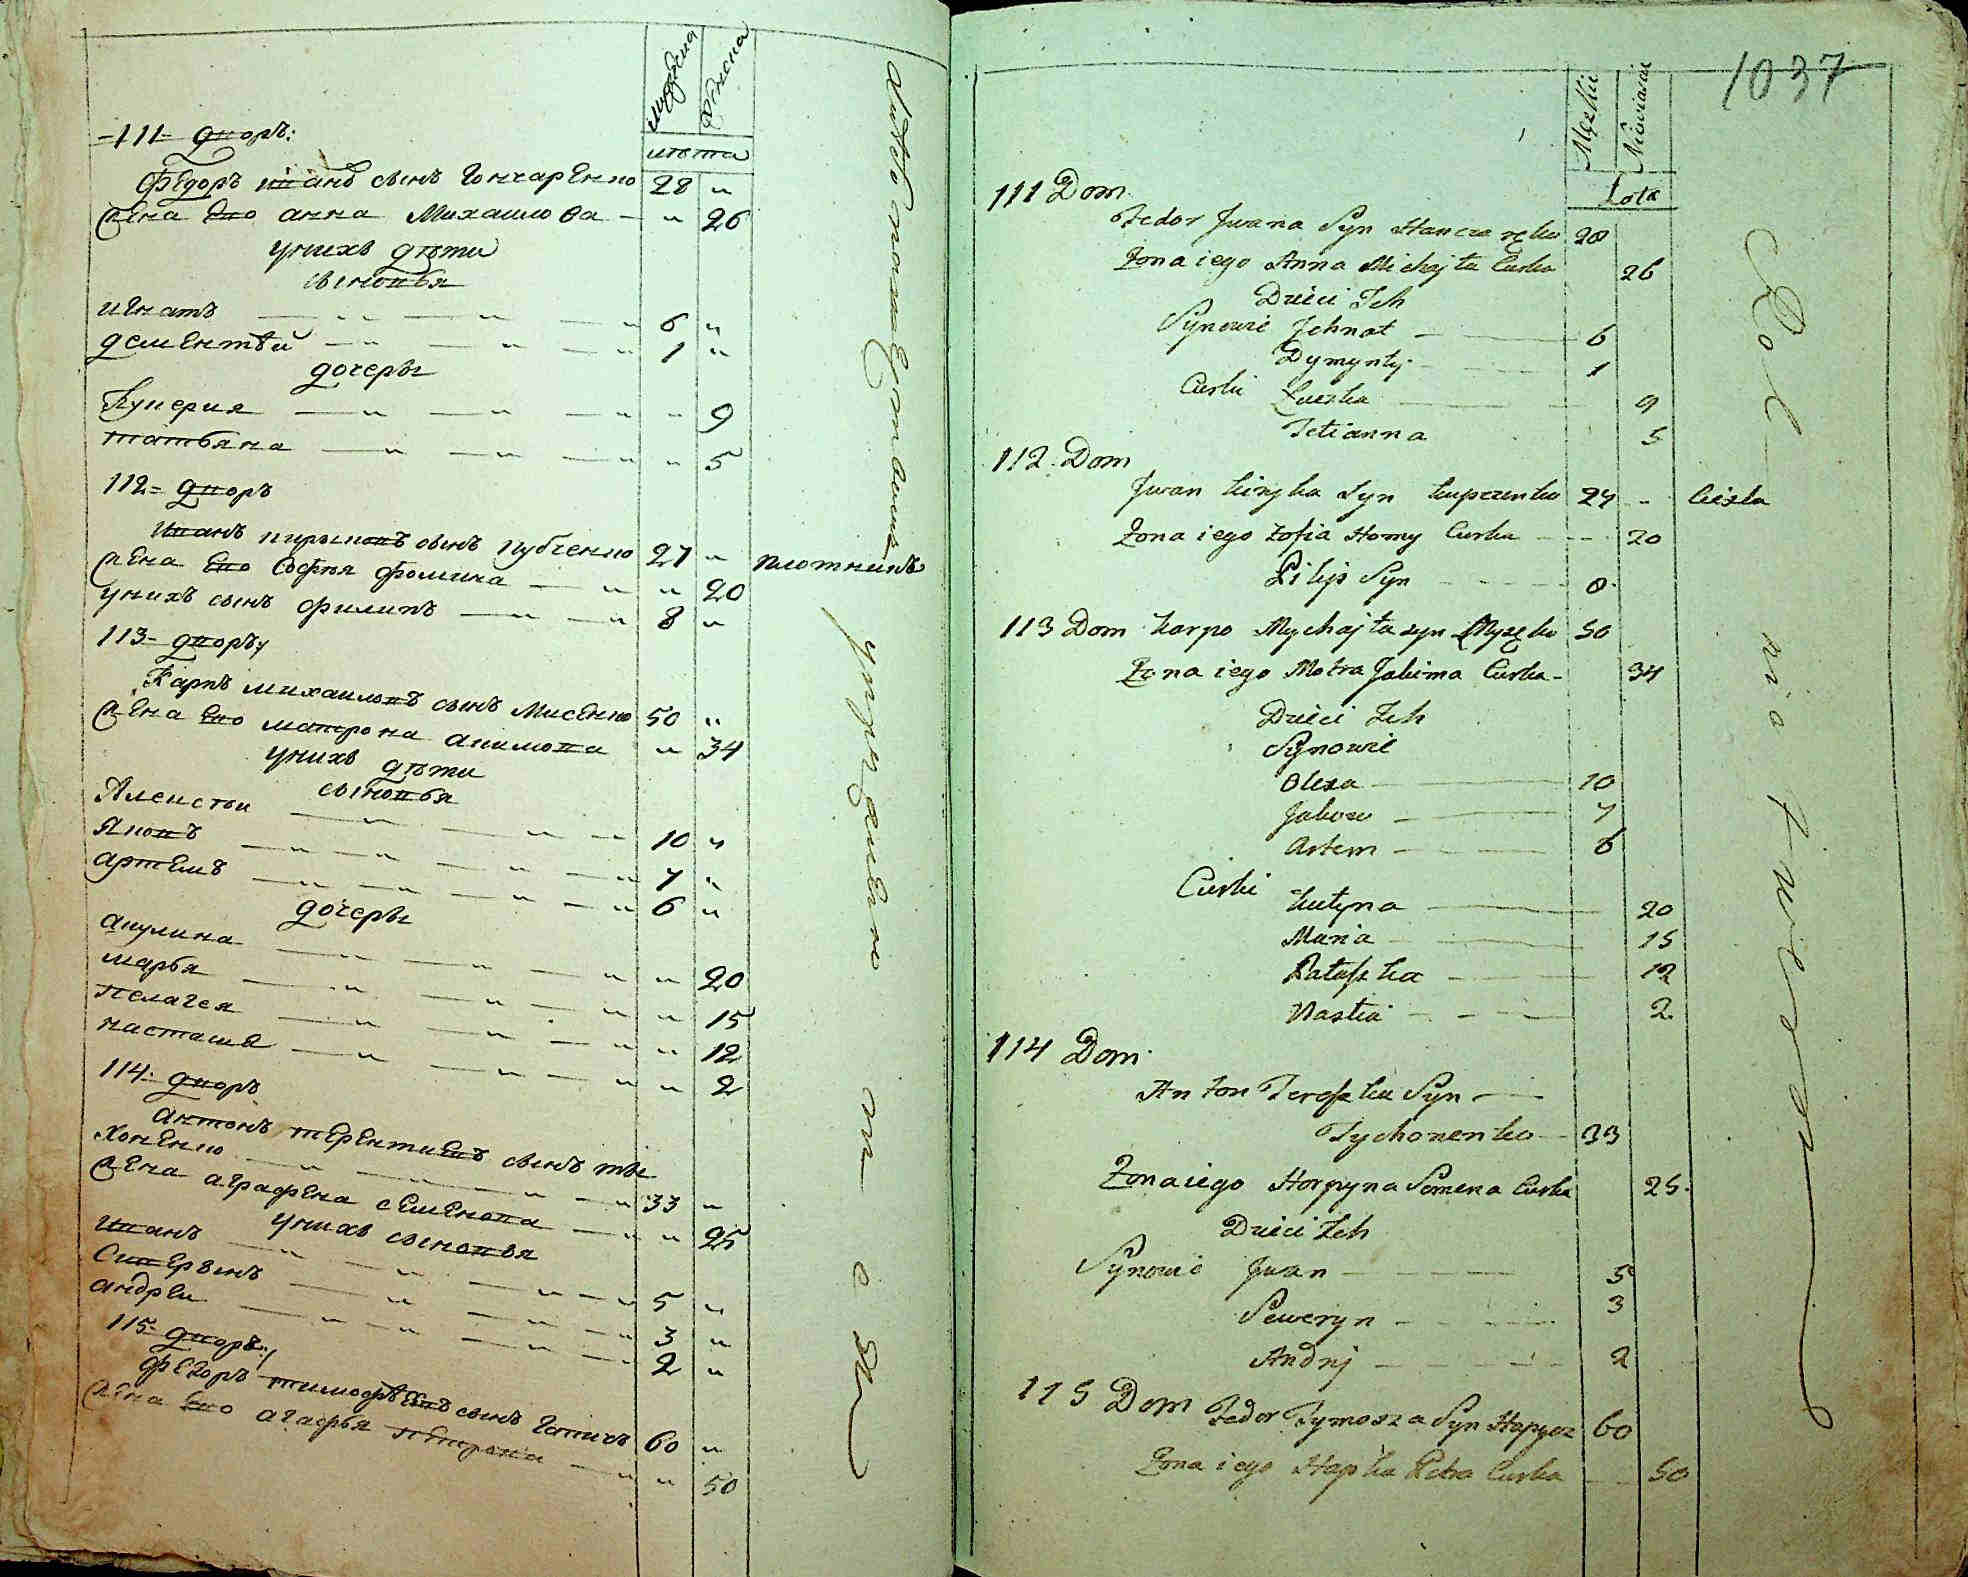 мужеска
женска
лѣта
111 дворъ:
Федоръ ивановъ сынъ Гончаренко 28 "
жена его анна Михаилова " 26
у нихъ дѣти
сыновья
игнатъ 6 "
дементѣй 1 "
дочеры
Лукерия " 9
татьяна " 5
112 дворъ
иванъ кириловъ сынъ купченко 27 " плотникъ
жена его Софья фомина " 20
у нихъ сынъ филипъ 8 "
113 дворъ
Карпъ михаиловъ сынъ Мисенко 50 "
жена его матрона акимова " 34
у нихъ дѣти
сыновья
Алексеи 10 "
Яковъ 7 "
артемъ 6 "
дочеры
акулина " 20
марья " 15
пелагея " 12
настасия " 2
114 дворъ
антонъ терентиевъ сынъ ты
хоненко 33 "
жена аграфена семенова " 25
у нихъ сыновья
иванъ 5 "
Сиверинъ 3 "
андреи 2 "
115 дворъ
федоръ тимофѣевъ сынъ гапичъ 60 "
жена его агафья петрова " 50
1037
Męskie
Niewiasie
Lota
111 Dom
Fedor Jwana Syn Hanczaręko 28
Żona iego Anna Michajła Curka 26
Dzieci Ich
Synowie Jehnat 6
Dymyntij 1
Curki Łucska 9
Tetianna 5
112 Dom
Jwan Kiryła Syn Kupczenko 27 Cieśla
Żona iego Zofia Homy Curka 20
Pilip Syn 8
113 Dom Karpo Mychajła syn Mysęko 50
Żona iego Motra Jakima Curka 34
Dzieci Ich
Synowie
Olexa 10
Jakow 7
Artem 6
Curki Kulyna 20
Maria 15
Pałaszka 12
Nastia 2
114 Dom
Anton Tereszka Syn
Tychonenko 33
Żona iego Horpyna Semena Curka 25
Dzieci Ich
Synowie Jwan 5
Seweryn 3
Andrij 2
115 Dom Fedor Tymosza Syn Hapycz 60
Żona iego Hapka Petra Curka 50